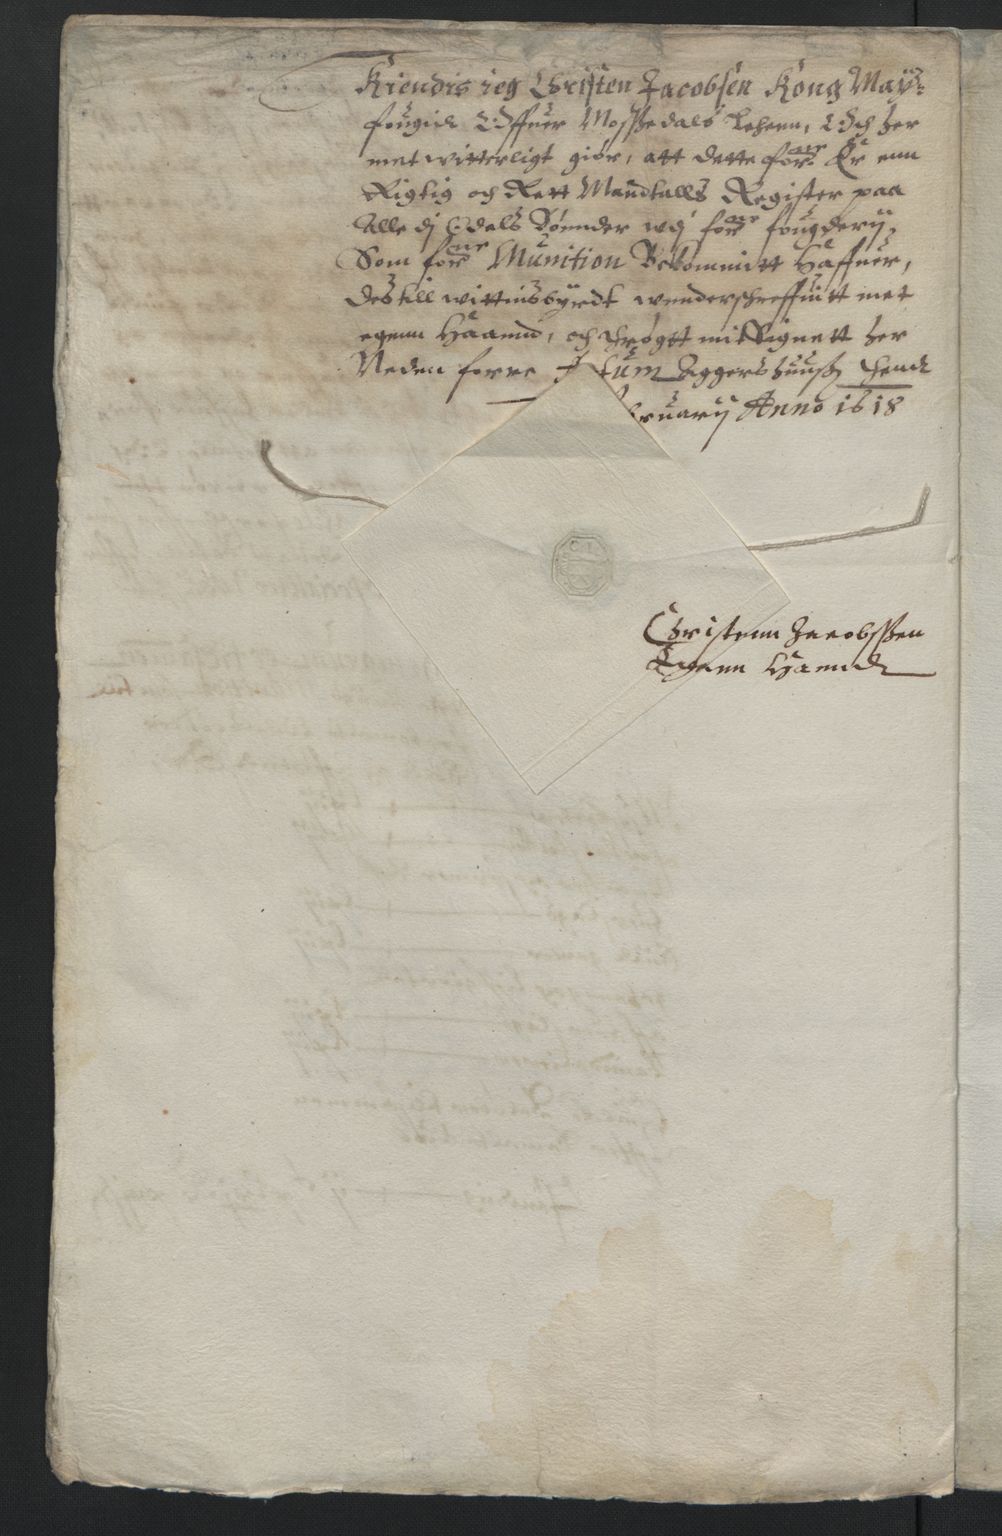 Kiendis ieg Christen Jacobsen Kong May:
fougidt Offuer Mossedals Lehenn, Och her
met witterligt giør, att dette for:ne Er enn
Rigtig och Rett Mandtalls Register paa
Alle dj Odels Bønnder wdj for:ne fougderij,
Som for:ne Munition Bekommitt Haffuer,
Des till wittnisbyrdt wnderschreffuitt met
egenn Haannd, och thrøgtt mit Signett her
Neden forre Actum Aggershuuss thend
bruarij Anno 1618
Christenn Jacobssen
Egenn Haandt